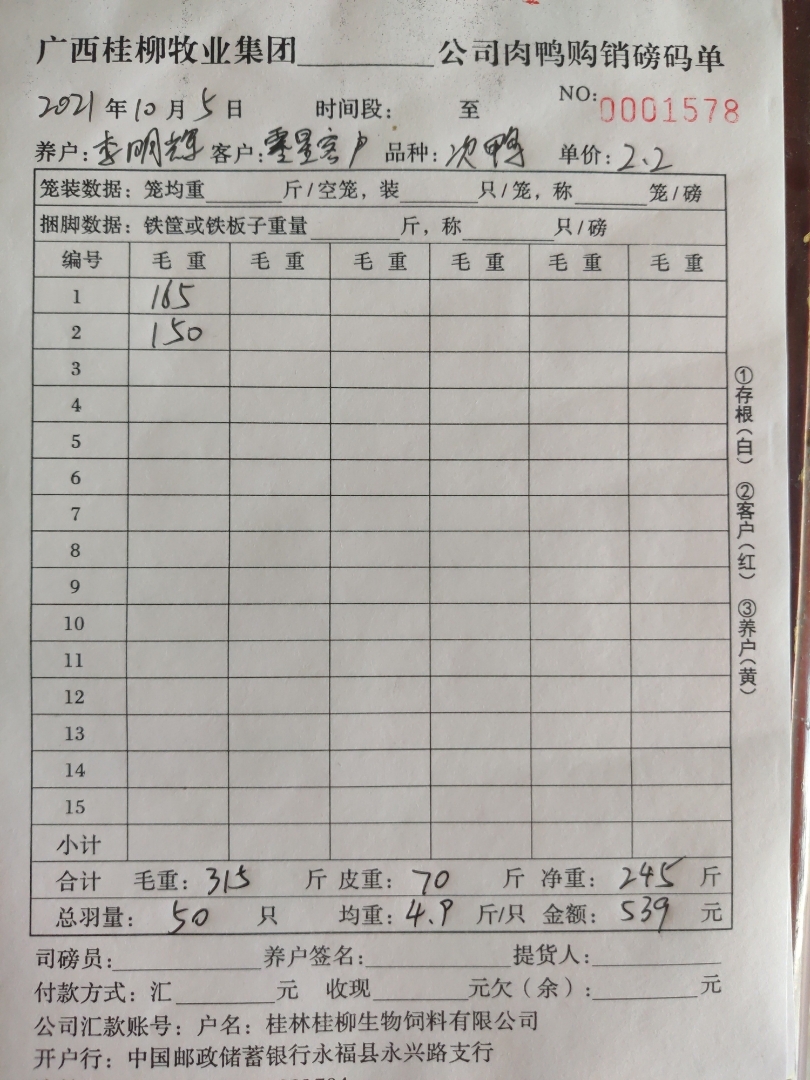 广西桂柳牧业集团________公司肉鸭购销磅码单
2021年10月5日 时间段: 至 NO:0001578
养户:李明辉 客户:零星客户 品种:次鸭 单价:2.2
笼装数据:笼均重______斤/空笼,装______只/笼,称______笼/磅
捆脚数据:铁筐或铁板子重量______斤,称______只/磅
编号 毛重 毛重 毛重 毛重 毛重 毛重
1 165
2 150
3
4
5
6
7
8
9
10
11
12
13
14
15
小计
合计 毛重:315 斤 皮重:70 斤 净重:245 斤
总羽量:50 只 均重:4.9 斤/只 金额:539 元
①存根(白) ②客户(红) ③养户(黄)
司磅员:________养户签名:________提货人:________
付款方式:汇______元 收现______元欠(余):______元
公司汇款账号:户名:桂林桂柳生物饲料有限公司
开户行:中国邮政储蓄银行永福县永兴路支行